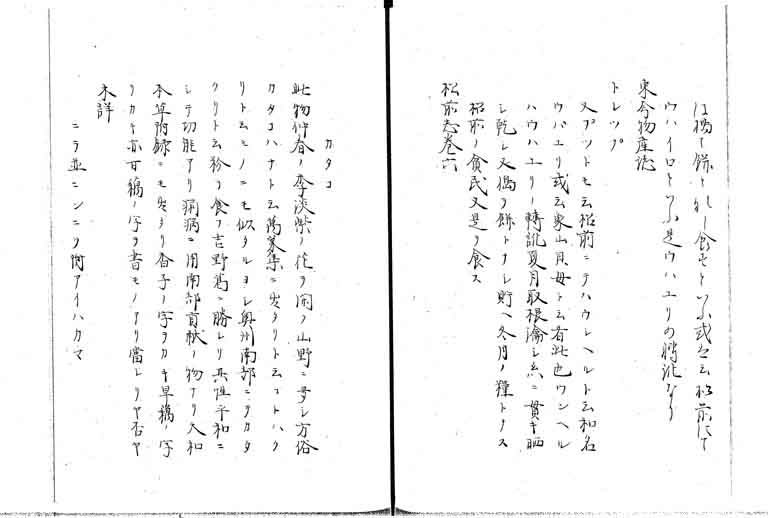 は搗て餅となし食せりといふ或は云松前にて
ウハイロといふ是ウハユリの轉訛なり
東夷物産志
トレップ
又プットモ云松前ニテハウレヘルト云和名
ウバユリ或云東山貝母ト云者此也ウンヘル
ハウハユリノ轉訛夏月取根瀹シ糸ニ貫キ晒
シ乾シ又搗テ餅トナシ貯ヘ冬月ノ糧トナス
松前ノ貧民又是ヲ食ス
松前志巻六
カタコ
此物仲春ノ季淡紫ノ花ヲ開ク山野ニ多シ方俗
カタコハナト云萬葉集ニ出タリト云コトハク
リト云モノニモ似タルヨシ奥州南部ニテカタ
クリト云粉ヲ食フ吉野葛ニ勝レリ其性平和ニ
シテ功能アリ痢病ニ用南部貢献ノ物ナリ大和
本草附録ニモ出タリ香子ノ字ヲカキ旱藕ノ字
ヲカキ亦百藕ノ字ヲ書モノアリ當レリヤ否ヤ
未詳
ニラ並ニンニク 附アイハカマ